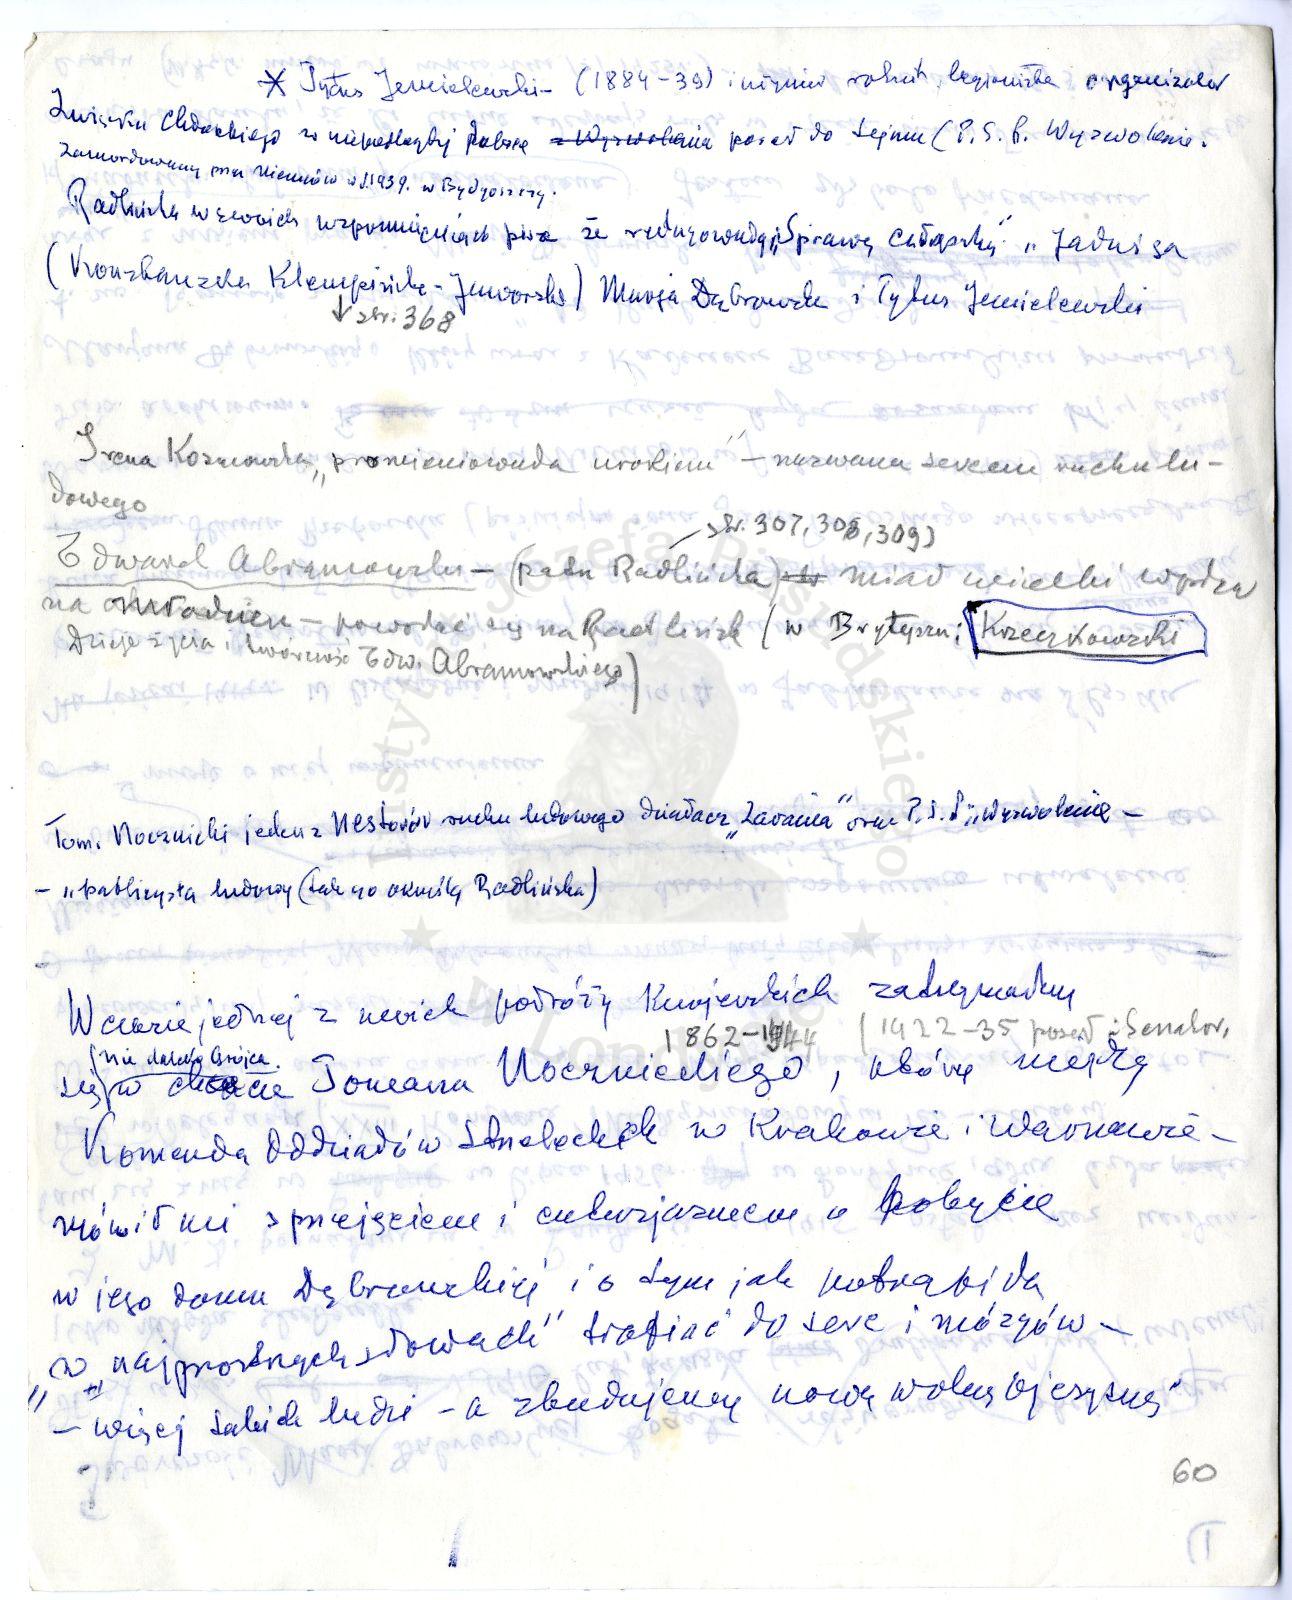 * Tytus Jemielewski – (1884–39) inżynier rolnik, legionista organizator
Związku Chłopskiego w niepodległej Polsce z Wyzwolenia poseł do Sejmu (P.S.L. Wyzwolenie.
Zamordowany przez Niemców w 1939. w Bydgoszczy.
Radlińska w swoich wspomnieniach pisze że redagowały „Sprawę Chłopską" „Jadwiga
(Konstancja Klempińska-Jaworska) Maria Dąbrowska i Tytus Jemielewski
str. 368
Irena Kosmowska „promieniowała urokiem" – nazwana sercem ruchu lu-
dowego
str. 307, 308, 309)
Edward Abramowski – (patrz Radlińska) miał wielki wpływ
na – powołać się na Radlińską (w Brytyszu; Krzeczkowski
Dzieje życia i twórczość Edw. Abramowskiego)
Tom. Nocznicki jeden z Nestorów ruchu ludowego działacz „Zarania" oraz P.S.L „Wyzwolenie –
– „publicysta ludowy (tak go określa Radlińska)
W czasie jednej z moich podróży Kurjerskich zatrzymałam
1862–1944 (1922–35 poseł i Senator,
nie daleko Grójca
się w chacie Tomasza Nocznickiego, który między
Komendą Oddziałów Strzeleckich w Krakowie i Warszawie –
mówił mi z przejęciem i entuzjazmem o pobycie
w jego domu Dąbrowskiej i o tym jak potrafiła
w „najprostszych słowach" trafiać do serc i mózgów –
„– więcej takich ludzi – a zbudujemy nową wolną ojczyznę"
60
Instytut Józefa Piłsudskiego
w Londynie